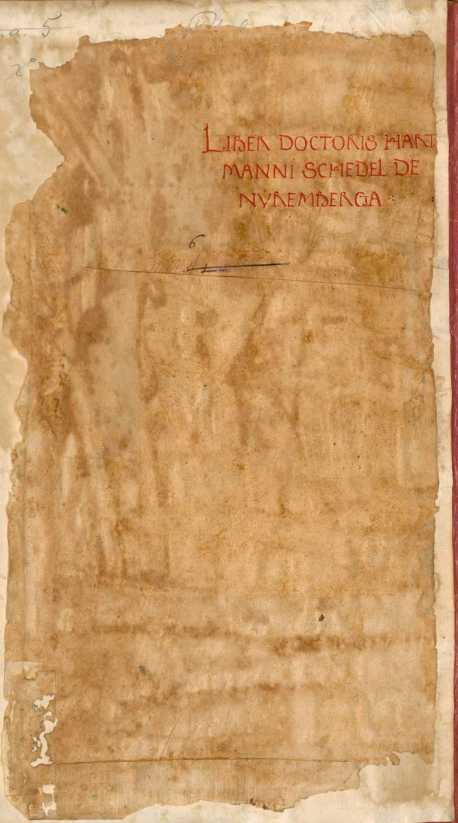 5
LIBER DOCTORIS HART
MANNI SCHEDEL DE
NVREMBERGA :